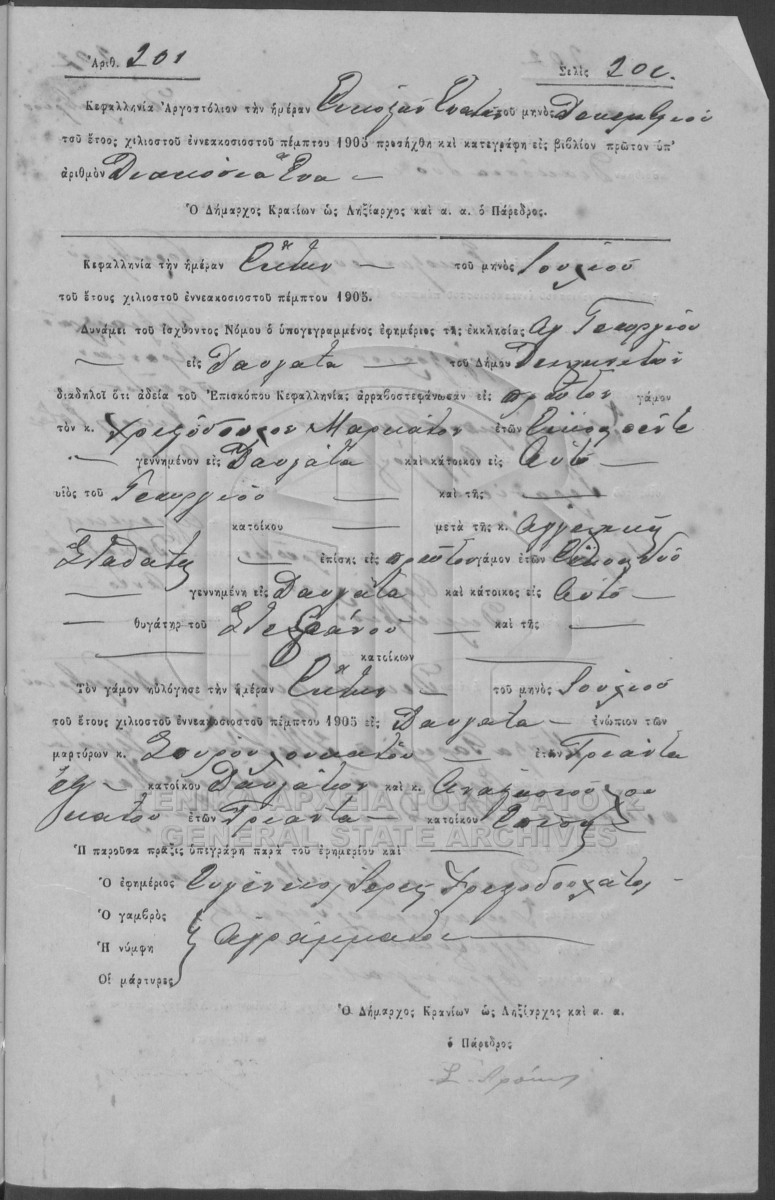 Ἀριθ. 201
Σελὶς 201.
Κεφαλληνία Ἀργοστόλιον τὴν ἡμέραν Εἰκοστὴν Ἐνάτην τοῦ μηνὸς Δεκεμβρίου
τοῦ ἔτους χιλιοστοῦ ἐννεακοσιοστοῦ πέμπτου 1905 προσήχθη καὶ κατεγράφη εἰς βιβλίον πρῶτον ὑπ'
ἀριθμὸν Διακόσια Ἕνα —
Ὁ Δήμαρχος Κρανίων ὡς Ληξίαρχος καὶ α. α. ὁ Πάρεδρος.
Κεφαλληνία τὴν ἡμέραν Ἕκτην — τοῦ μηνὸς Ἰουλίου
τοῦ ἔτους χιλιοστοῦ ἐννεακοσιοστοῦ πέμπτου 1905.
Δυνάμει τοῦ ἰσχύοντος Νόμου ὁ ὑπογεγραμμένος ἐφημέριος τῆς ἐκκλησίας Ἁγ Γεωργίου
— εἰς Δαυγάτα — τοῦ Δήμου
διαδηλοῖ ὅτι ἀδεία τοῦ Ἐπισκόπου Κεφαλληνίας ἀρραβοστεφάνωσεν εἰς πρῶτον γάμον
τὸν κ. Χρυσόστομον Μαρκάτον ἐτῶν Εἰκοσιπέντε
— γεννημένον εἰς Δαυγάτα καὶ κάτοικον εἰς Αὐτό —
υἱὸς τοῦ Γεωργίου — καὶ τῆς —
— κατοίκου — μετὰ τῆς κ. Ἀγγελικῆς
— ἐπίσης εἰς πρῶτον γάμον ἐτῶν Εἴκοσι δύο
— γεννημένη εἰς Δαυγάτα καὶ κάτοικος εἰς Αὐτό —
— θυγάτηρ τοῦ Στεφάνου — καὶ τῆς —
— κατοίκων —
Τὸν γάμον ηὐλόγησε τὴν ἡμέραν Ἕκτην — τοῦ μηνὸς Ἰουλίου
τοῦ ἔτους χιλιοστοῦ ἐννεακοσιοστοῦ πέμπτου 1905 εἰς Δαυγάτα — ἐνώπιον τῶν
μαρτύρων κ. — ἐτῶν Τριάντα
ἕξ — κατοίκου Δαυγάτων καὶ κ.
ἐτῶν Τριάντα — κατοίκου
ΓΕΝΙΚΑ ΑΡΧΕΙΑ ΤΟΥ ΚΡΑΤΟΥΣ
GENERAL STATE ARCHIVES
Ἡ παροῦσα πρᾶξις ὑπεγράφη παρὰ τοῦ ἐφημερίου καὶ —
Ὁ ἐφημέριος Εὐγένιος Ἱερεὺς
Ὁ γαμβρὸς
Ἡ νύμφη Ἀγράμματοι —
Οἱ μάρτυρες
Ὁ Δήμαρχος Κρανίων ὡς Ληξίαρχος καὶ α. α.
ὁ Πάρεδρος